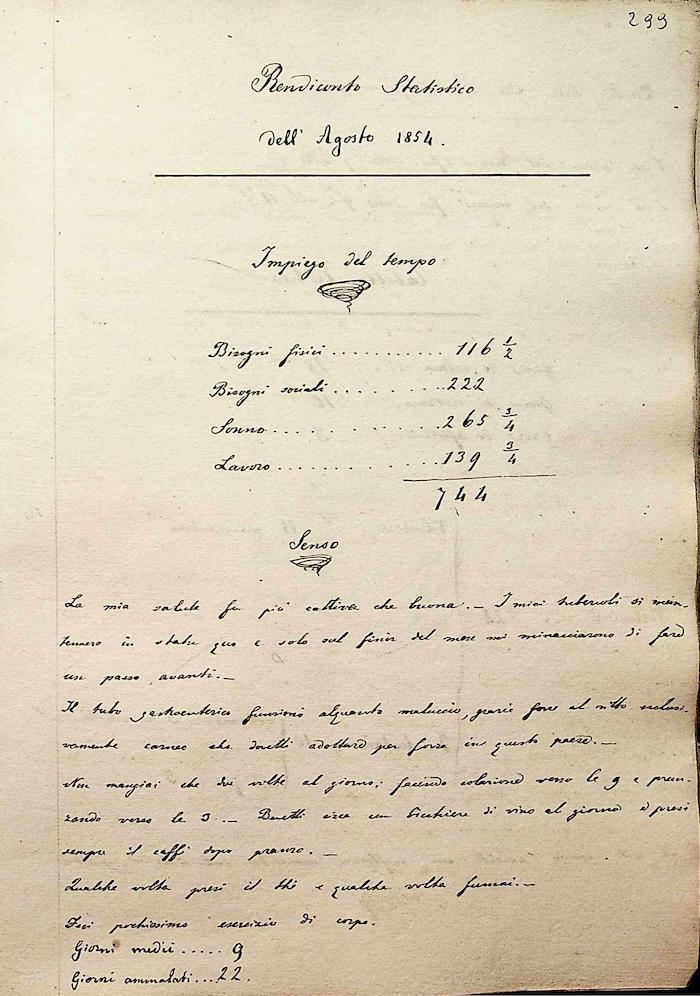 299
Rendiconto Statistico
dell' Agosto 1854.
Impiego del tempo
Bisogni fisici .......... 116 1/2
Bisogni sociali ......... 222
Sonno .......... 265 3/4
Lavoro .......... 139 3/4
744
Senso
La mia salute fu più cattiva che buona. — I miei tubercoli si man-
tennero in statu quo e solo sul finir del mese mi minacciarono di fare
un passo avanti. —
Il tubo gastroenterico funzionò alquanto maluccio, grazie forse al vitto esclusi-
vamente carneo che dovetti adottare per forza in questo paese. —
Non mangiai che due volte al giorno; facendo colazione verso le 9 e pran-
zando verso le 3. — Bevetti circa un bicchiere di vino al giorno e presi
sempre il caffè dopo pranzo. —
Qualche volta presi il thè e qualche volta fumai. —
Feci pochissimo esercizio di corpo.
Giorni medii ..... 9
Giorni ammalati ... 22.